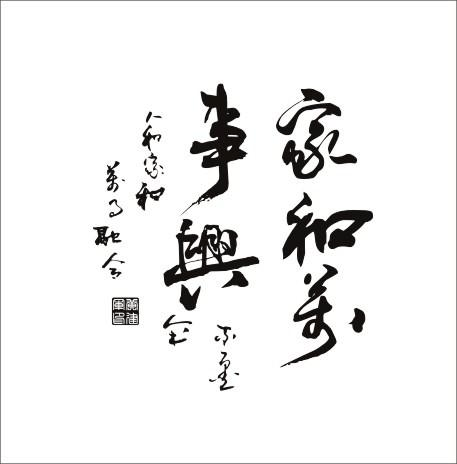 家和萬
事興
人和家和
萬事融合